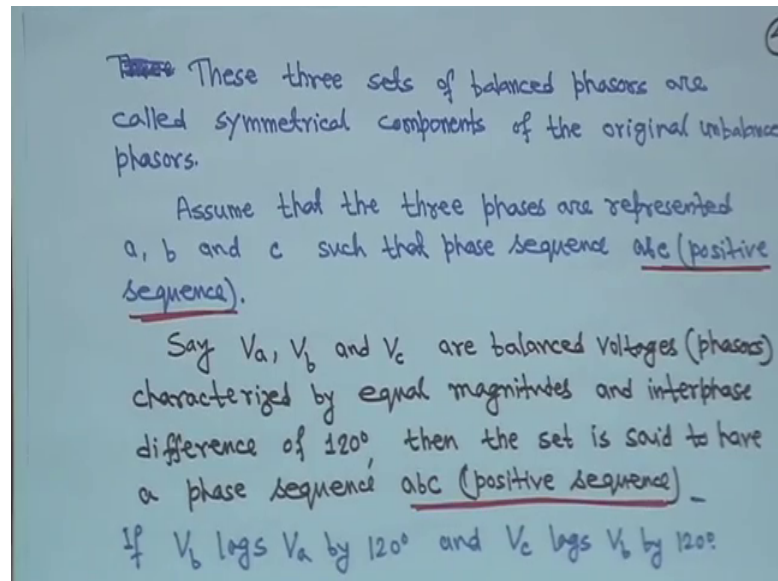 These three sets of balanced phasors are
called symmetrical components of the original unbalance
phasors.
Assume that the three phases are represented
a, b and c such that phase sequence abc (positive
sequence).
Say Va, Vb and Vc are balanced voltages (phasors)
characterized by equal magnitudes and interphase
difference of 120°, then the set is said to have
a phase sequence abc (positive sequence)
If Vb lags Va by 120° and Vc lags Vb by 120°.